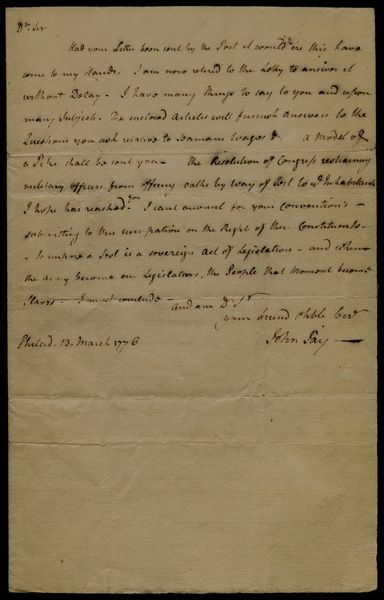 Dr. Sir
Had your Letter been sent by the Post it would ere this have
come to my Hands. I am now retired to the Lobby to answer it
without Delay - I have many Things to say to you and upon
many Subjects. The enclosed Articles will furnish answers to the
Questions you ask relative to Seamans Wages &. a Model of
a Pike shall be sent you - the Resolution of Congress restraining
military officers from offering oaths by way of Test to ye Inhabitants
I hope has reached you I cant account for your Convention's -
submitting to this usurpation on the Right of their Constituents -
- to impose a Test is a sovereign act of Legislation - and when
the army become our Legislators, the People that Moment become
Slaves - I must conclude -
and am Dr. Sr
your friend & hble Servt
John Jay -
Philad. 13. March 1776